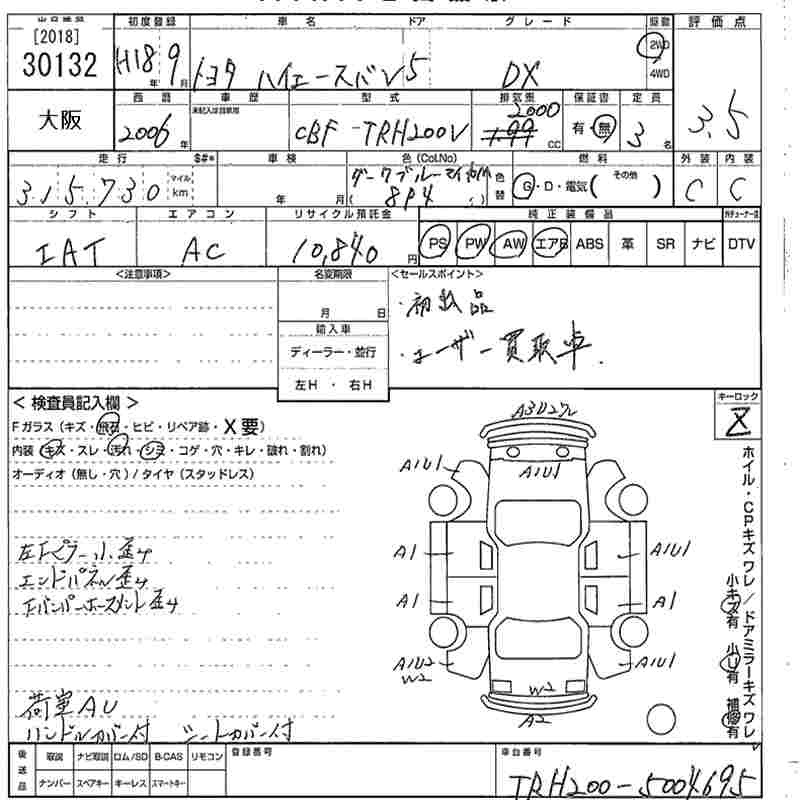 [2018]
30132
初度登録
車名
ドア
グレード
駆動
評価点
H18年9月
トヨタ ハイエースバン
5
DX
2WD
4WD
3.5
大阪
西暦
車歴
型式
排気量
保証書
定員
2006年
未記入は自家用
CBF-TRH200V
2000
1.99
CC
有・無
3名
走行
$#*
車検
色(Col.No)
燃料
外装
内装
315,730
マイル
km
年 月
ダークブルーマイカM
(8P4)
色替
G・D・電気( その他 )
C
C
シフト
エアコン
リサイクル預託金
純正装備品
IAT
AC
10,840円
PS
PW
AW
エアB
ABS
革
SR
ナビ
DTV
<注意事項>
名変期限
<セールスポイント>
月 日
・初出品
輸入車
・ユーザー買取車.
ディーラー・並行
左H・右H
< 検査員記入欄 >
キーロック
Z
Fガラス(キズ・飛石・ヒビ・リペア跡・X要)
内装(キズ・スレ・汚れ・シミ・コゲ・穴・キレ・破れ・割れ)
オーディオ(無し・穴)/タイヤ(スタッドレス)
A3U2ワレ
A1U1
A1U1
A1U1
A1
A1U1
A1
A1
A1U2
W2
W2
A1U1
A2
左Fピラー小歪サ
エンドパネル歪サ
Fバンパーホースメント歪サ
荷室AU
ハンドルカバー付 シートカバー付
ホイル・CPキズワレ/ドアミラーキズワレ
小キズ有 小U有 補修有
後送品
取説
ナビ取説
ロム/SD
B-CAS
リモコン
ナンバー
スペアキー
キーレス
スマートキー
登録番号
車台番号
TRH200-5004695